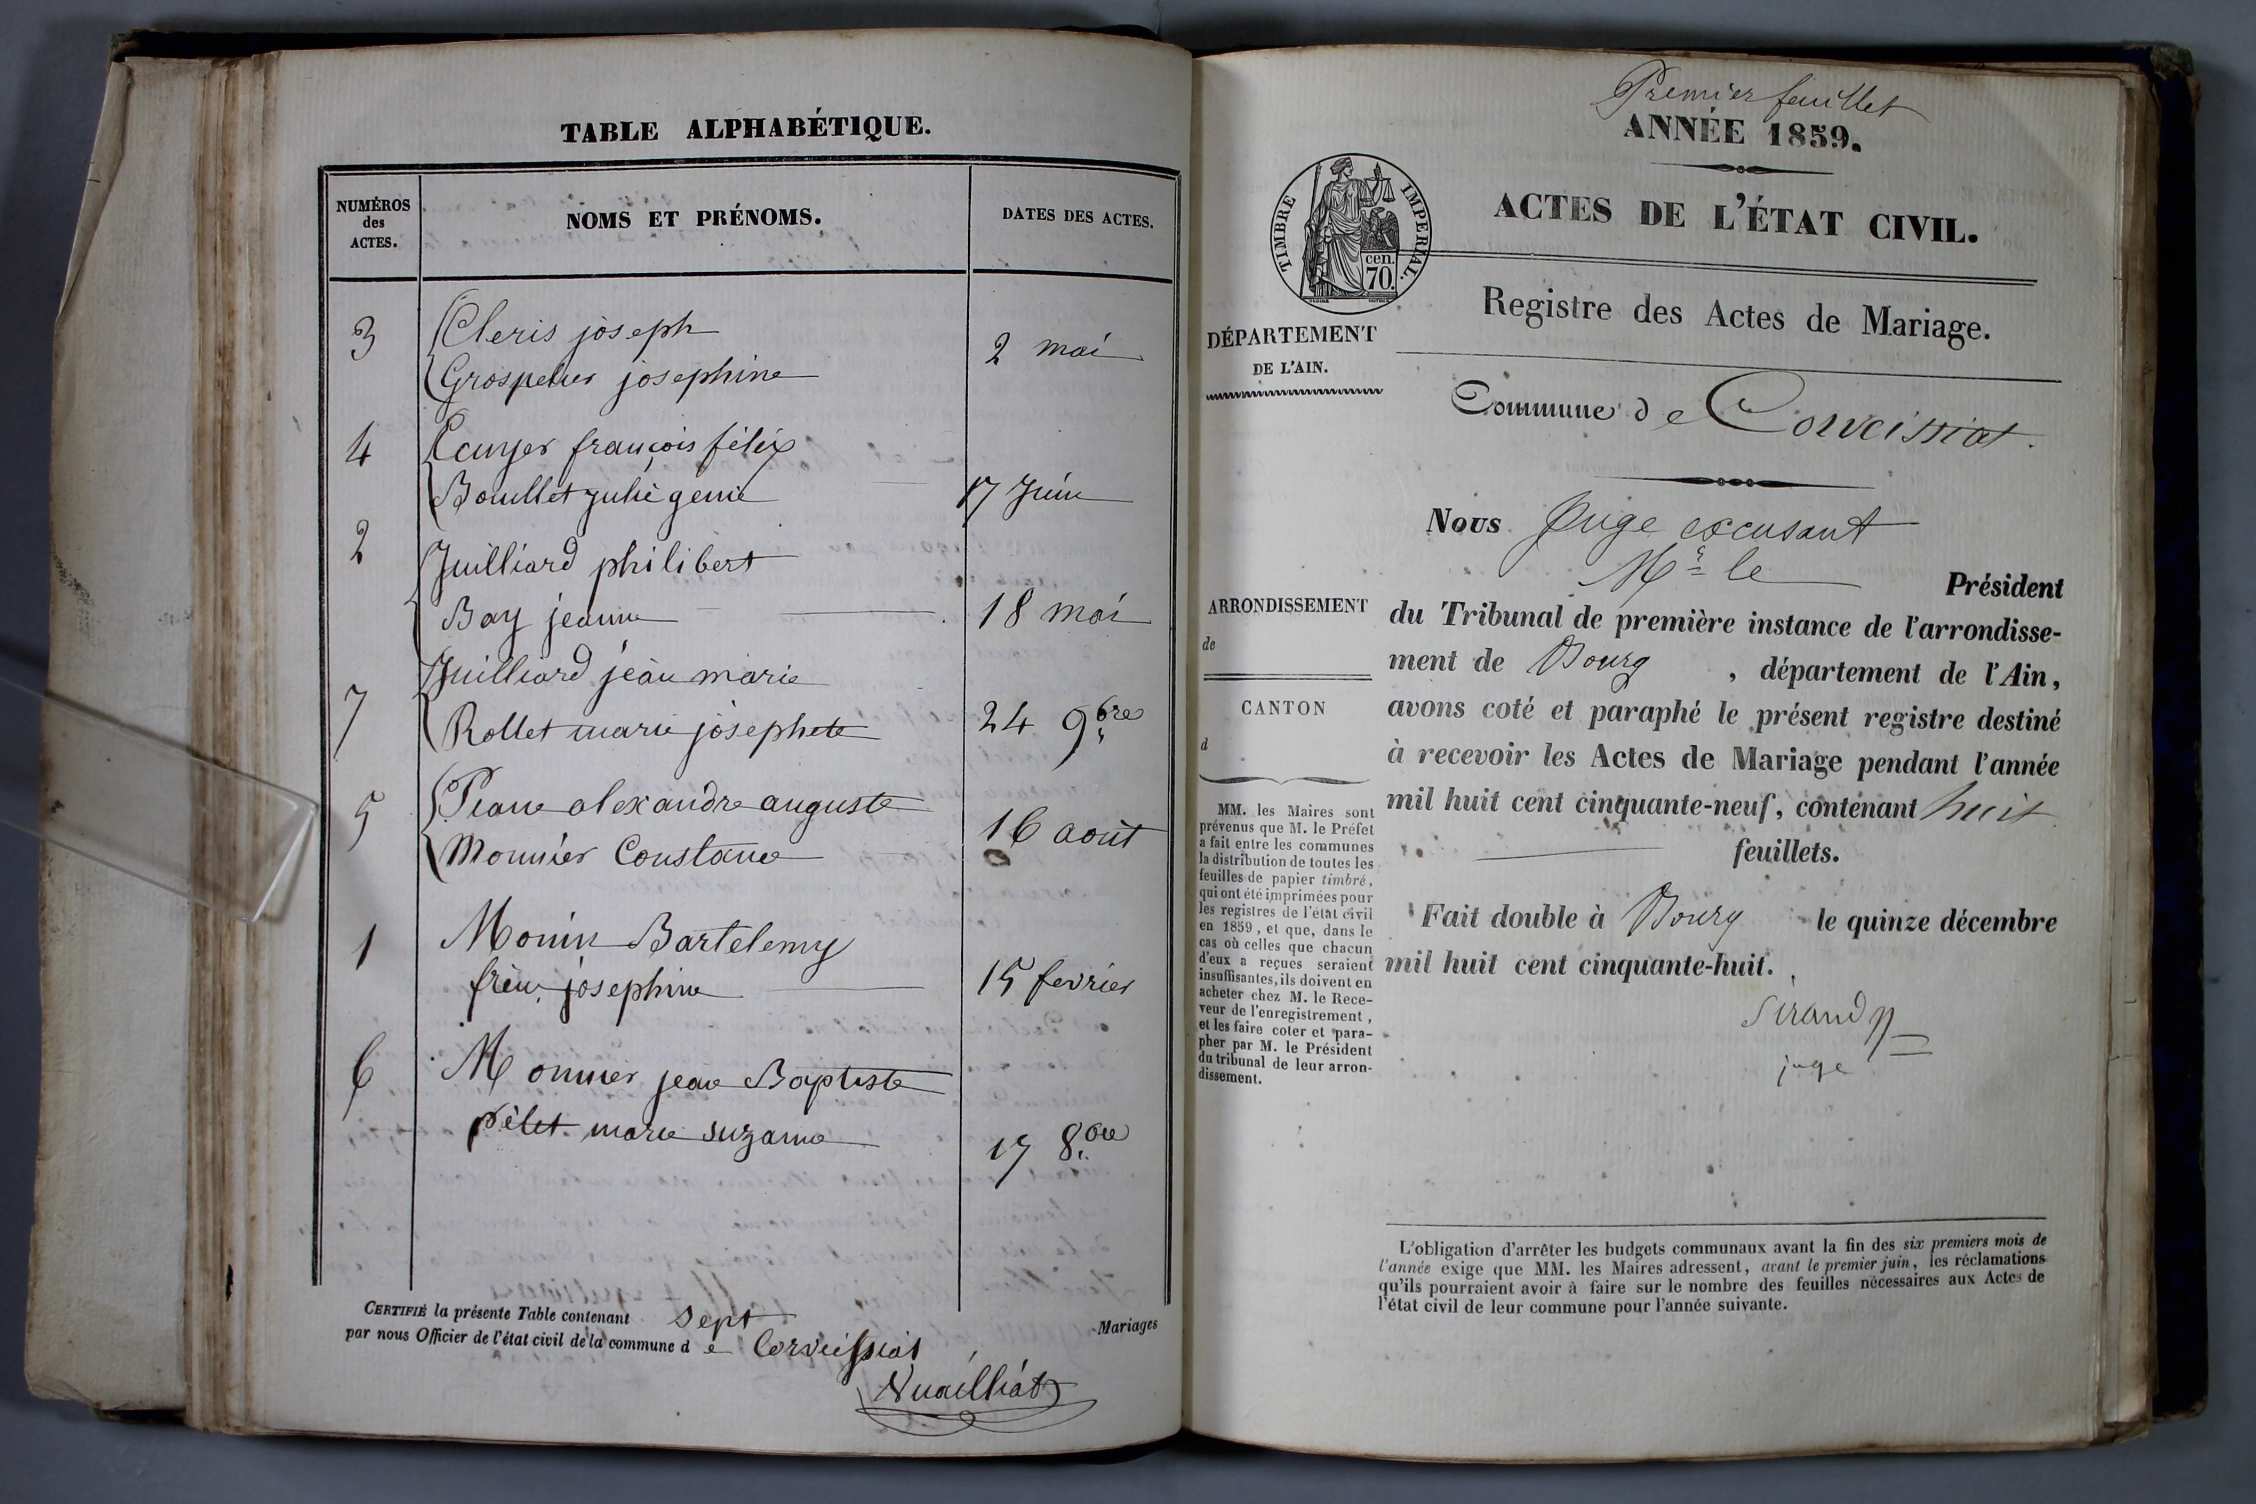 TABLE ALPHABÉTIQUE.
NUMÉROS
des
ACTES.
NOMS ET PRÉNOMS.
DATES DES ACTES.
3 Cleris joseph
Grospelier josephine 2 mai
4 Ecuyer françois félix
Bouillet julie génie 17 Juin
2 Juilliard philibert
Bay jeanne 18 mai
7 Juilliard jean marie
Rollet marie josephete 24 9bre
5 Piane alexandre auguste
Monnier Constance 16 août
1 Monin Bartelemy
josephine 15 fevrier
6 Monnier jean Baptiste
pélet marie suzanne 17 8bre
CERTIFIÉ la présente Table contenant sept Mariages
par nous Officier de l'état civil de la commune d e Corveissiat
Vuailliat
Premier feuillet
ANNÉE 1859.
TIMBRE IMPERIAL.
cen.
70.
ACTES DE L'ÉTAT CIVIL.
Registre des Actes de Mariage.
DÉPARTEMENT
DE L'AIN.
Commune d e Corveissiat.
Nous Juge excusant
Mr le Président
ARRONDISSEMENT
de
CANTON
d
du Tribunal de première instance de l'arrondisse-
ment de Bourg, département de l'Ain,
avons coté et paraphé le présent registre destiné
à recevoir les Actes de Mariage pendant l'année
mil huit cent cinquante-neuf, contenant huit
feuillets.
Fait double à Bourg le quinze décembre
mil huit cent cinquante-huit.
Sirand
juge
MM. les Maires sont
prévenus que M. le Préfet
a fait entre les communes
la distribution de toutes les
feuilles de papier timbré,
qui ont été imprimées pour
les registres de l'état civil
en 1859, et que, dans le
cas où celles que chacun
d'eux a reçues seraient
insuffisantes, ils doivent en
acheter chez M. le Rece-
veur de l'enregistrement,
et les faire coter et para-
pher par M. le Président
du tribunal de leur arron-
dissement.
L'obligation d'arrêter les budgets communaux avant la fin des six premiers mois de
l'année exige que MM. les Maires adressent, avant le premier juin, les réclamations
qu'ils pourraient avoir à faire sur le nombre des feuilles nécessaires aux Actes de
l'état civil de leur commune pour l'année suivante.